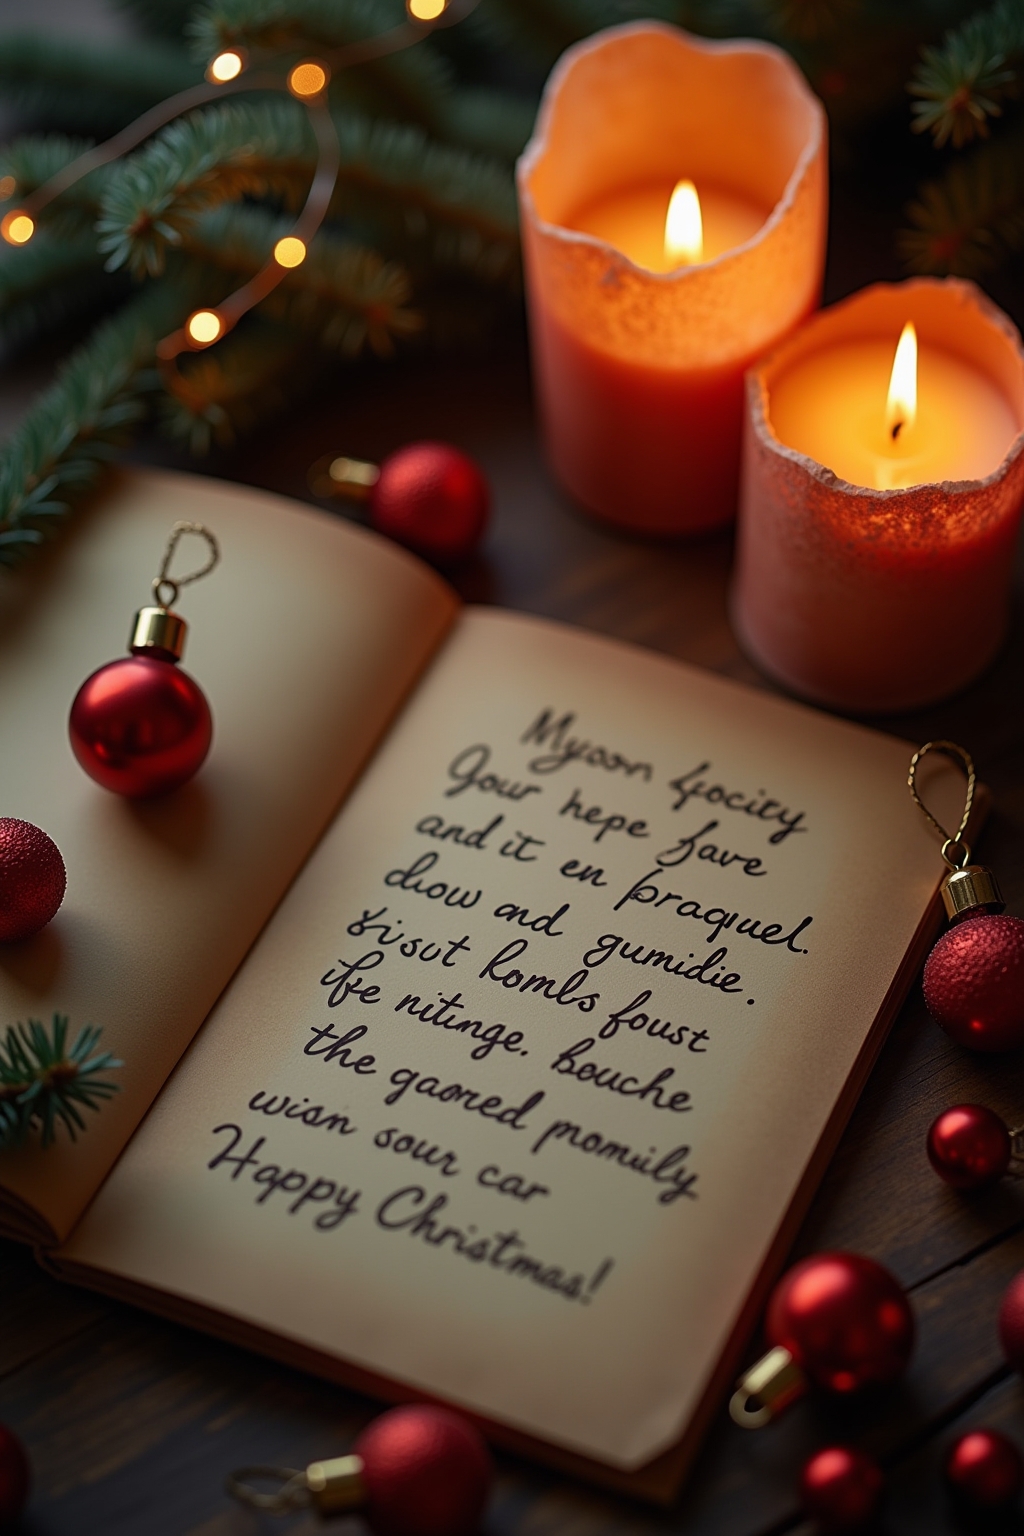 Myoon focity
Gour hepe fave
and it en praquel.
dlow and gumidie.
Yisut komls foust
ife nitinge. bouche
the gaored pomuily
wisn sour car
Happy Christmas!